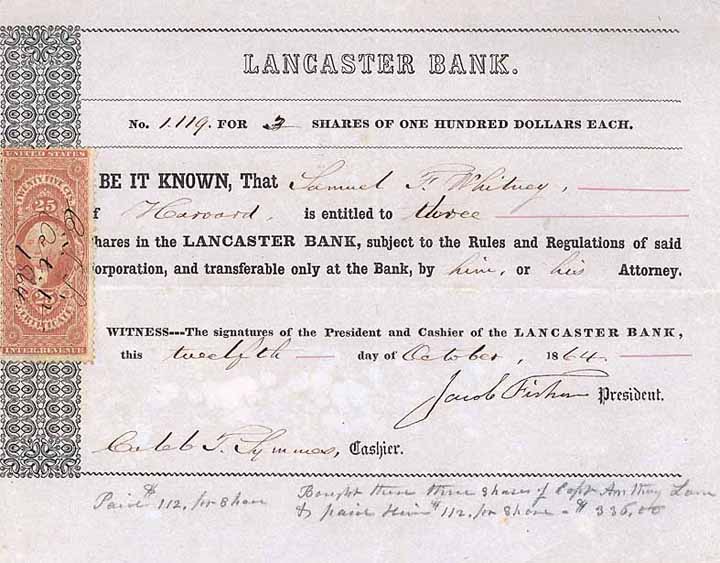 LANCASTER BANK.
No. 1.119. FOR 3 SHARES OF ONE HUNDRED DOLLARS EACH.
BE IT KNOWN, That Samuel F. Whitney,
f Harvard, is entitled to three
hares in the LANCASTER BANK, subject to the Rules and Regulations of said
orporation, and transferable only at the Bank, by him, or his Attorney.
WITNESS---The signatures of the President and Cashier of the LANCASTER BANK,
this twelfth day of October, 1864.
Jacob Fisher President.
Caleb T. Symmes, Cashier.
Paid $112, for Share
Bought these three Shares of Capt Anthony Lane
& paid Him $112, for Share - $336,00
UNITED STATES
TWENTY FIVE CTS
25
25
INTER. REVENUE
Oct. 12